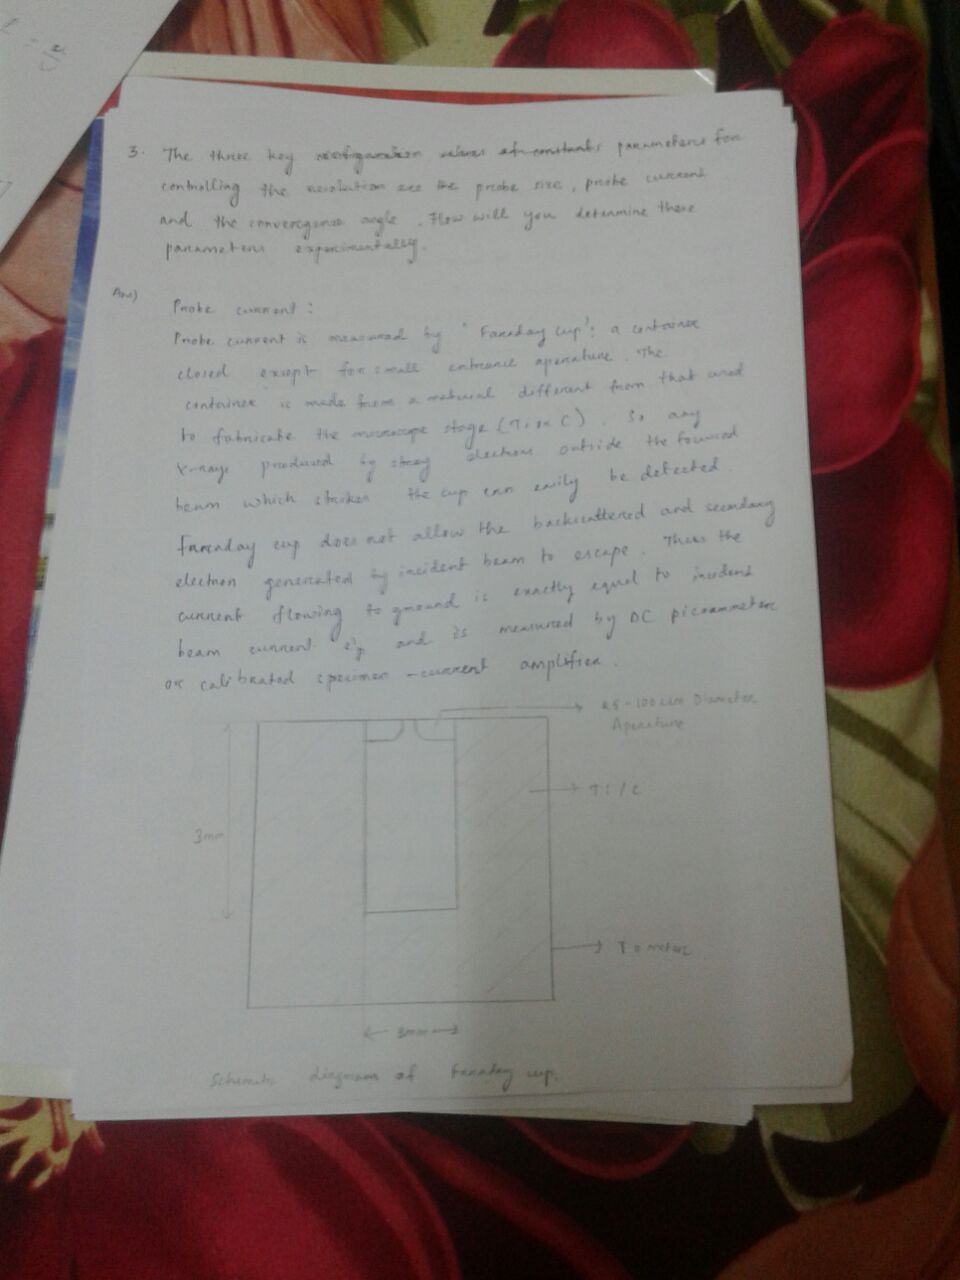 3. The three key parameters for
controlling the resolution are the probe size, probe current
and the convergence angle. How will you determine these
parameters experimentally.
Ans)
Probe current :
Probe current is measured by 'Faraday cup': a container
closed except for small entrance aperature. The
container is made from a material different from that used
to fabricate the microscope stage (Ti or C). So any
X-rays produced by stray electrons outside the focused
beam which strikes the cup can easily be detected.
Faraday cup does not allow the backscattered and secondary
electron generated by incident beam to escape. Thus the
current flowing to ground is exactly equal to incident
beam current ip and is measured by DC picoammeter
or calibrated specimen-current amplifier.
25-100um Diameter
Aperature
Ti/C
3mm
To meter
3mm
Schematic diagram of Faraday cup.